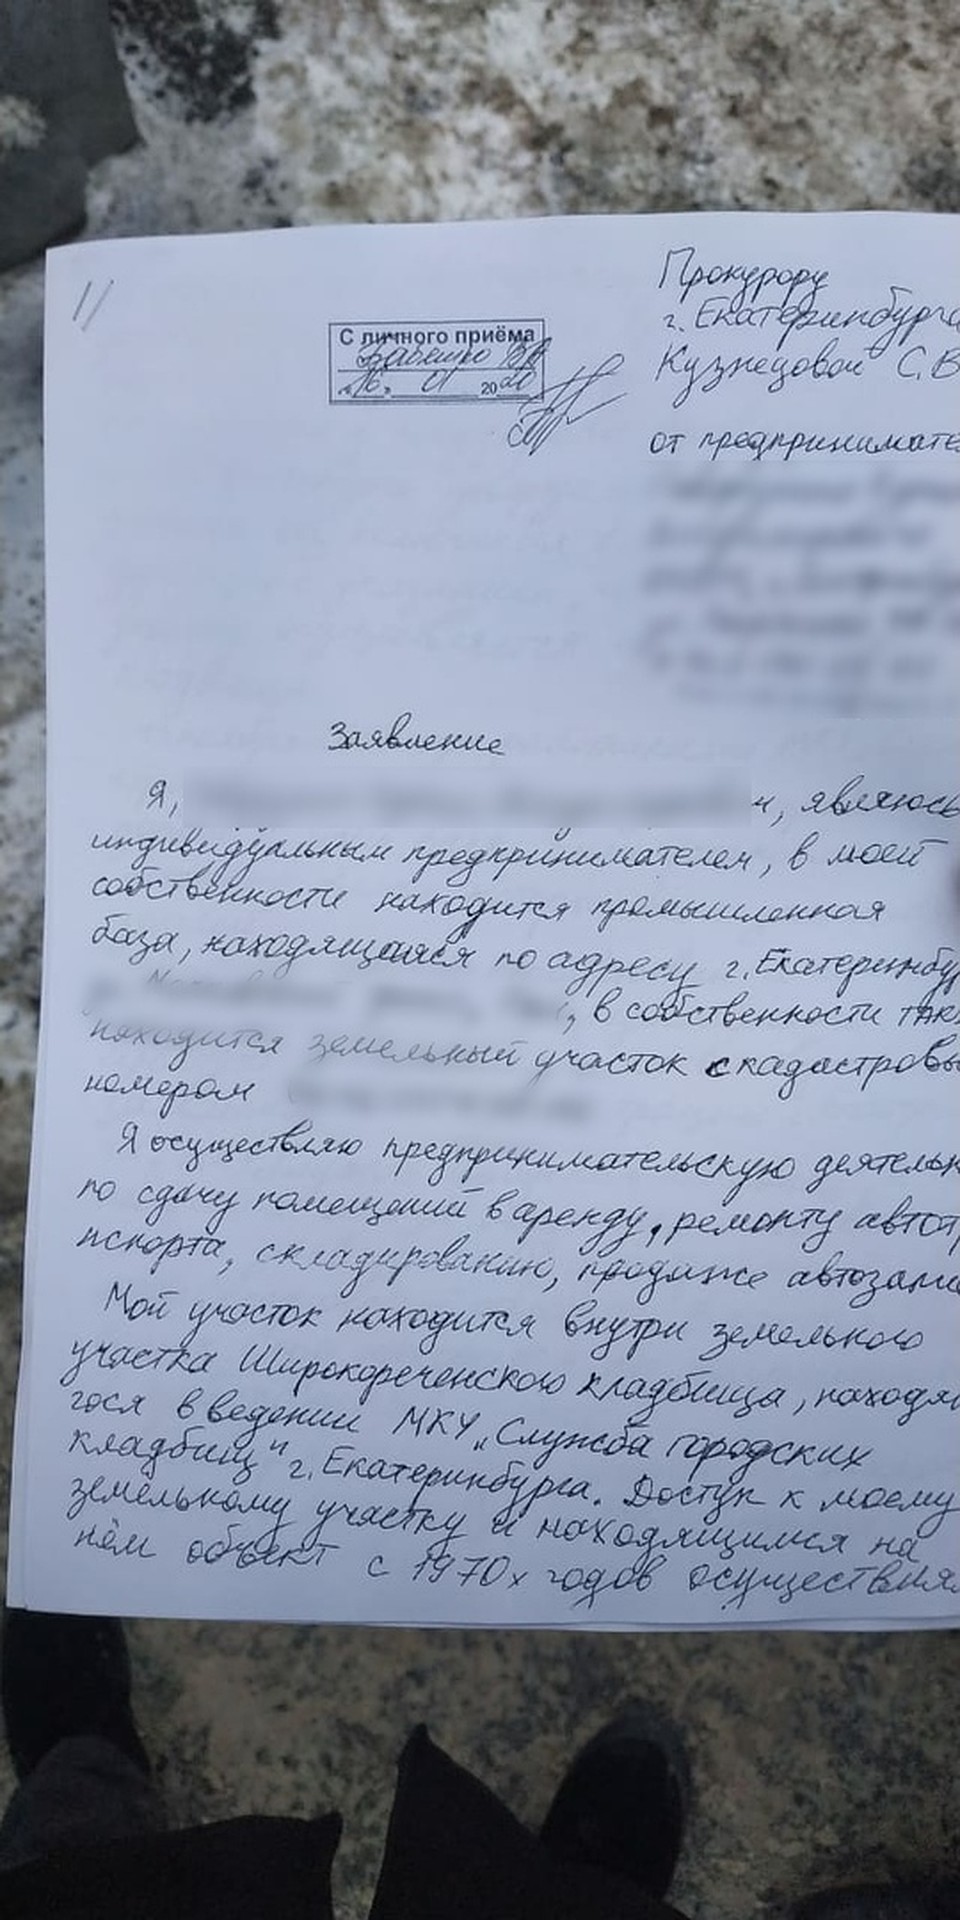 1/
С личного приёма
«16» 01 2020
Прокурору
г. Екатеринбурга
Кузнецовой С.В
от предпринимате
Заявление
Я, ч, являюсь
индивидуальным предпринимателем, в моей
собственности находится промышленная
база, находящаяся по адресу г. Екатеринбур
, в собственности такж
находится земельный участок с кадастровы
номером
Я осуществляю предпринимательскую деятельн
по сдачу помещений в аренду, ремонту автотр
нспорта, складированию, продаже автозапч
Мой участок находится внутри земельного
участка Широкореченского кладбища, находящ
гося в ведении МКУ „Служба городских
кладбищ" г. Екатеринбурга. Доступ к моему
земельному участку и находящимся на
нём объект с 1970х годов осуществля